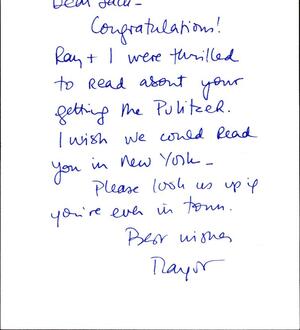 Dear Jack -
Congratulations!
Ray + I were thrilled
to read about your
getting the Pulitzer.
I wish we could read
you in New York -
Please look us up if
you're ever in town.
Best wishes